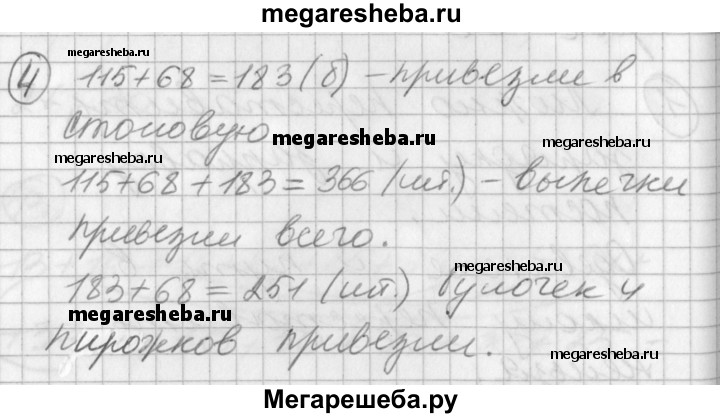 megaresheba.ru
megaresheba.ru
④ 115+68=183(б) – привезли в
столовую
megaresheba.ru
megaresheba.ru
115+68+183=366 (шт.) – выпечки
привезли всего.
megaresheba.ru
183+68=251 (шт.) булочек и
megaresheba.ru
пирожков привезли.
megaresheba.ru
Мегарешеба.ру